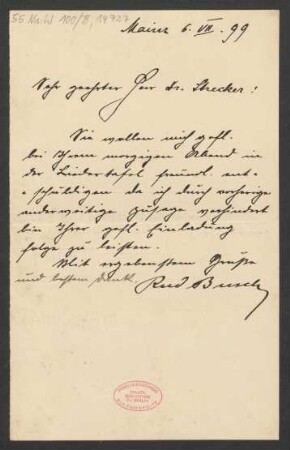 55 Nachl 100/B, 19727
Mainz 6. VII. 99
Sehr geehrter Herr Dr. Strecker!
Sie wollen mich gefl.
bei Ihrem morgigen Abend in
der Liedertafel freundl. ent-
schuldigen da ich durch vorherige
anderweitige Zusage verhindert
bin Ihrer gefl. Einladung
folge zu leisten.
Mit ergebenstem Gruße
und bestem Dank. Rud Busch